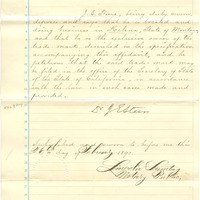 J. E. being duly sworn,
deposes and says that he is located and
doing business in Helena, State of Montana
and that he is the exclusive owner of the
trade mark described in the specification
accompanying this affidavit, and he
petitions that the said trade mark may
be filed in the office of the Secretary of State
of the State of California, in accordance
with the law in such cases made and
provided.
Dr J E
Subscribed and sworn to before me this
day of February 189
Notary Public